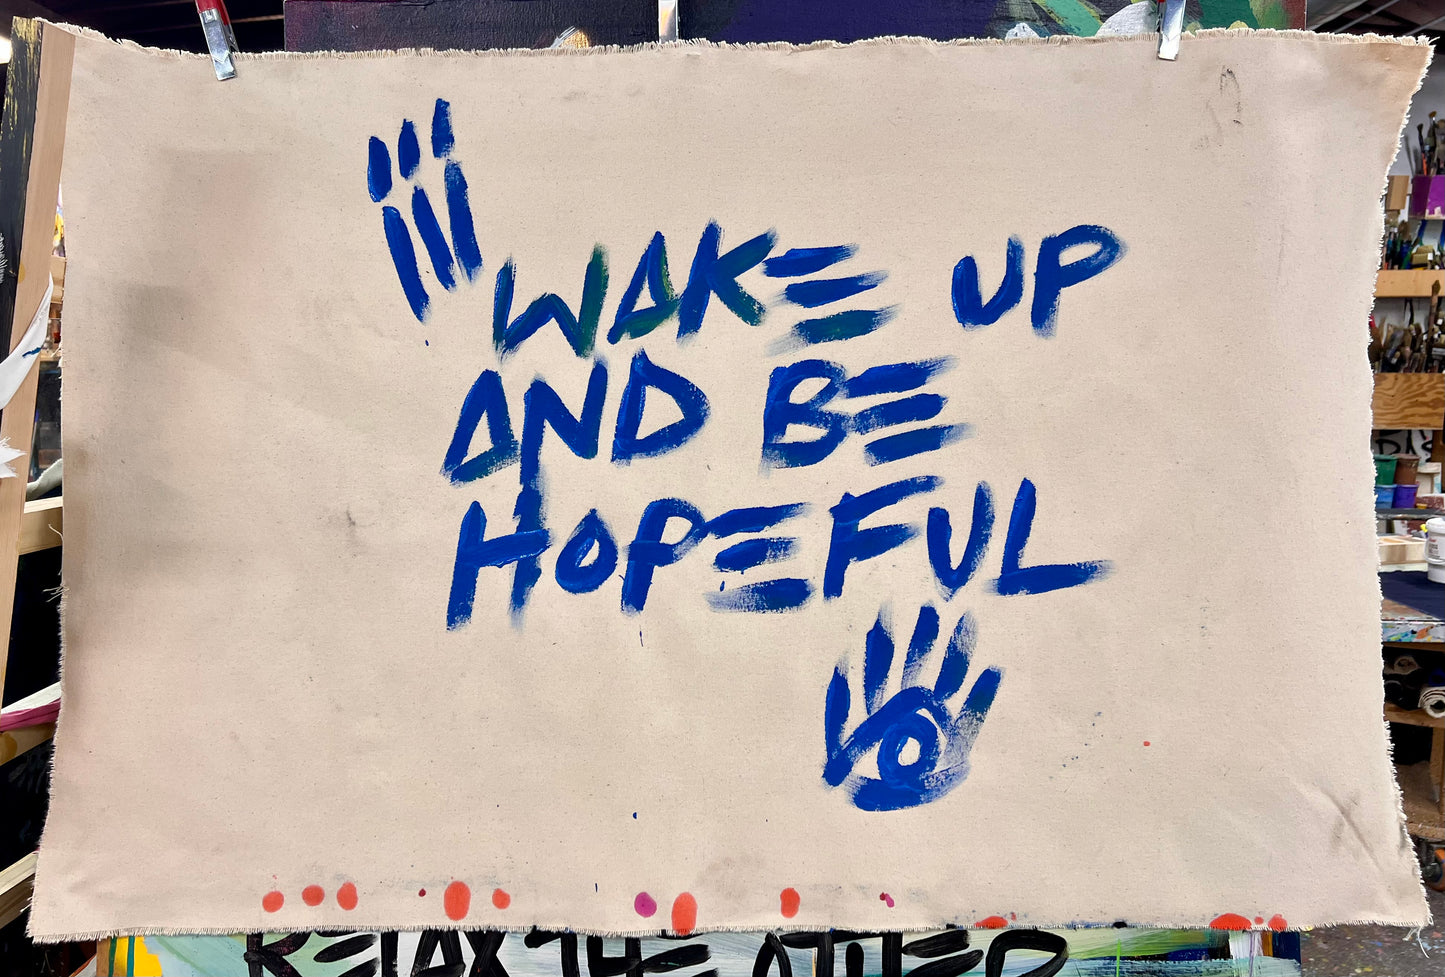 WAKE UP
AND BE
HOPEFUL
RELAX THE OTHER